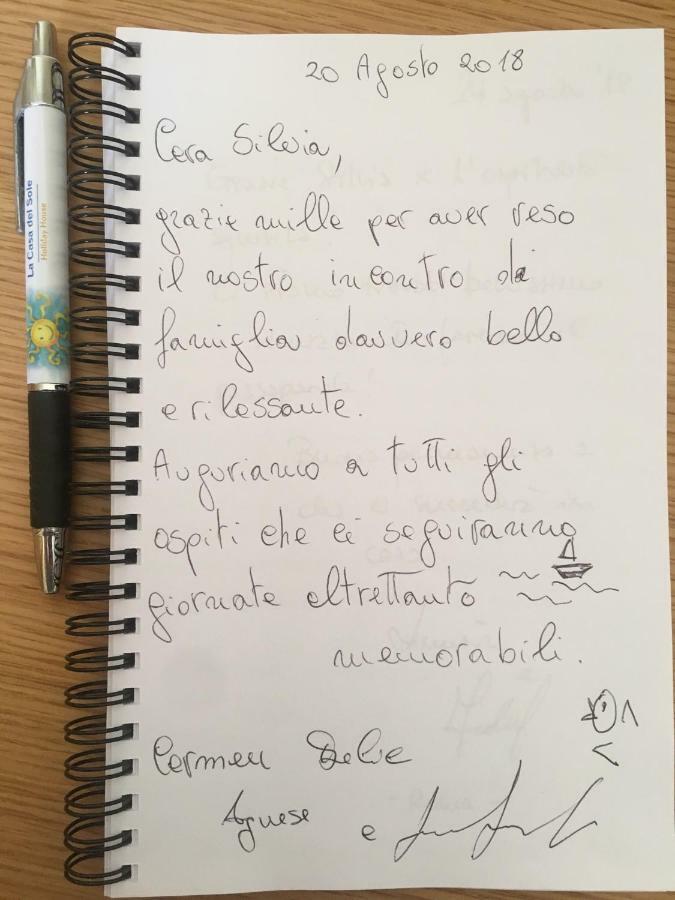 20 Agosto 2018
Cara Silvia,
grazie mille per aver reso
il nostro incontro di
famiglia davvero bello
e rilassante.
Auguriamo a tutti gli
ospiti che ci seguiranno
giornate altrettanto
memorabili.
Carmen
Agnese
e
La Casa del Sole
Holiday House